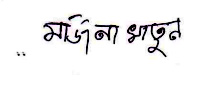 মর্জিনা খাতুন